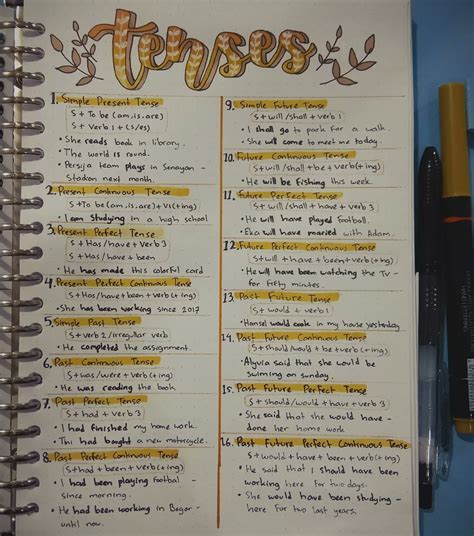 tenses
1. Simple Present Tense
S + To be (am.is.are)
S + Verb 1 + (s/es)
• She reads book in library.
• The world is round.
• Persija team plays in Senayan -
Stadion next month.
2. Present Continuous Tense
S+To be (am.is.are)+V1(+ing)
• I am studying in a high school
3. Present Perfect Tense
S + Has/have + Verb 3
S + Has/have + been
• He has made this colorful card
4. Present Perfect Continuous Tense
S+Has/have + been + verb (+ing)
• She has been working since 2017
5. Simple Past Tense
S + verb 2/irregular verb
• He completed the assignment.
6. Past Continuous Tense
S+was/were + verb (+ing)
• He was reading the book
7. Past Perfect Tense
S + had + verb 3
• I had finished my home work.
• Thi had bought a new motorcycle.
8. Past Perfect Continuous Tense
S+had+been + verb (+ing)
• I had been playing footbal -
since morning.
• He had been working in Bogor -
until now.
9. Simple Future Tense
S + will/shall + verb 1
• I shall go to park for a walk.
• She will come to meet me today.
10. Future Continuous Tense
S + will/shall + be + verb (+ing)
• He will be fishing this week.
11. Future Perfect Tense
S + will/shall + have + verb 3
• He will have played football.
• Eka will have married with Adam.
12. Future Perfect Continuous Tense
S+will + have + been+verb(+ing)
• He will have been watching the Tv -
for fifty minutes.
13. Past Future Tense
S + would + verb 1
• Hansel would cook in my house yesterday
14. Past Future Continuous Tense
S+should/would + be + verb (+ing)
• Alyvia said that she would be
swiming on sunday.
15. Past Future Perfect Tense
S + should/would + have + verb 3
• She said that she would have -
done her home work.
16. Past Future Perfect Continuous Tense
S + would + have + been + verb(+ing)
• He said that I should have been
working here for two days.
• She would have been studying -
here for two last years.